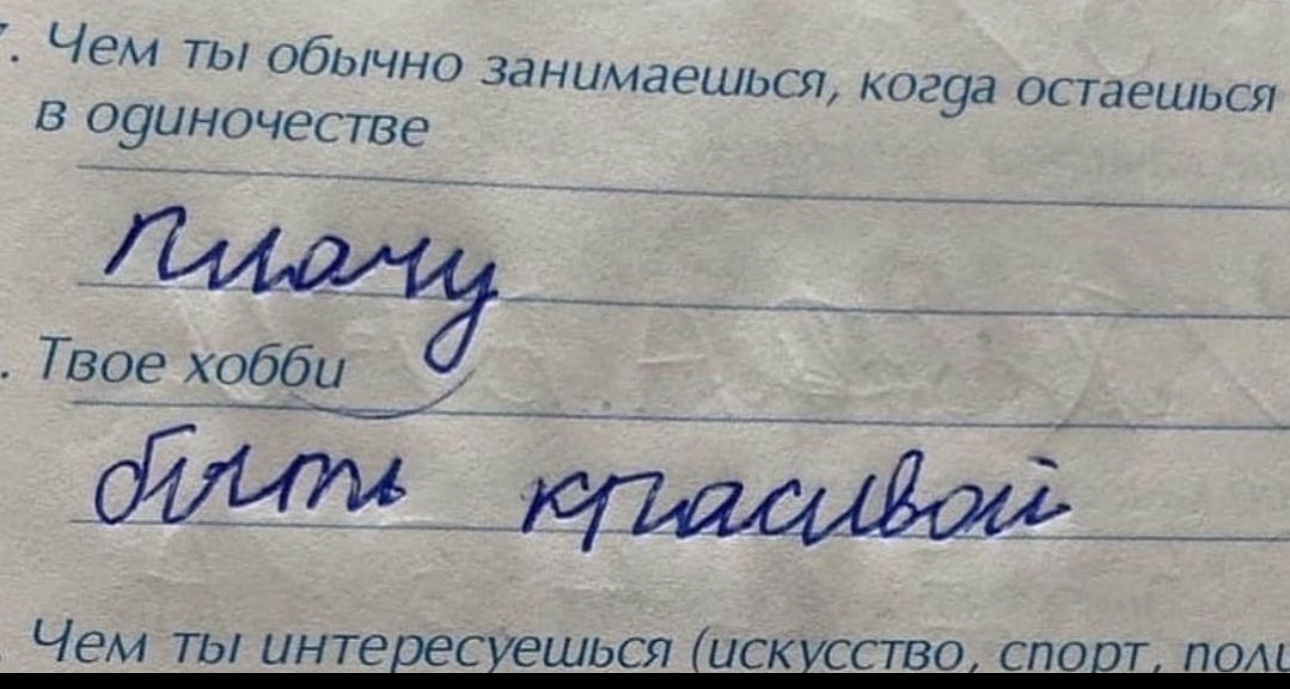 . Чем ты обычно занимаешься, когда остаешься
в одиночестве
плачу
. Твое хобби
быть красивой
. Чем ты интересуешься (искусство, спорт,